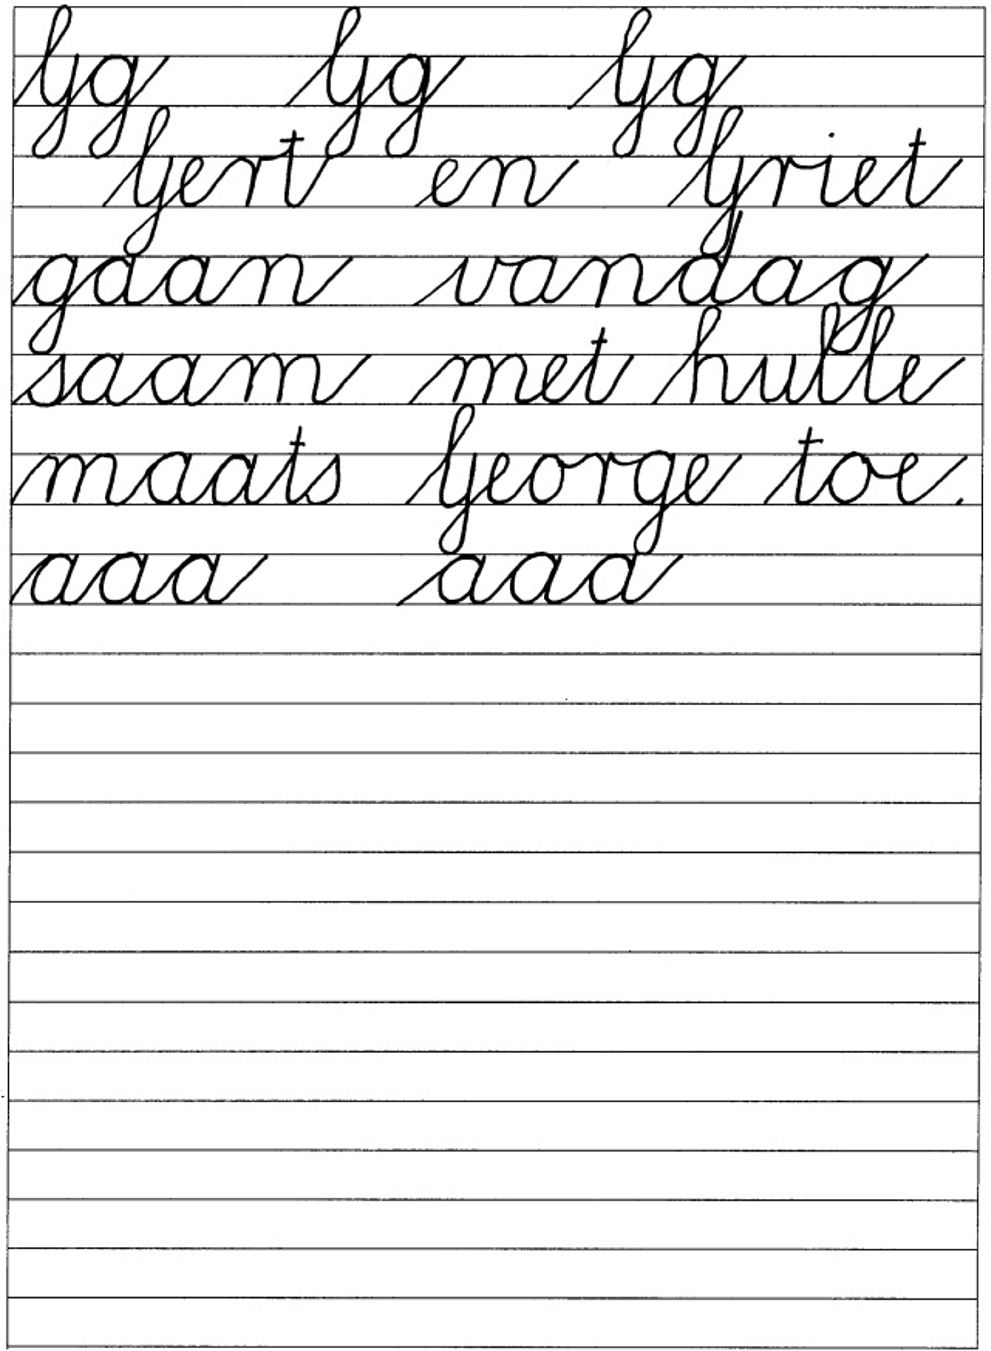 Gg Gg Gg
Gert en Griet
gaan vandag
saam met hulle
maats George toe.
aaa aaa